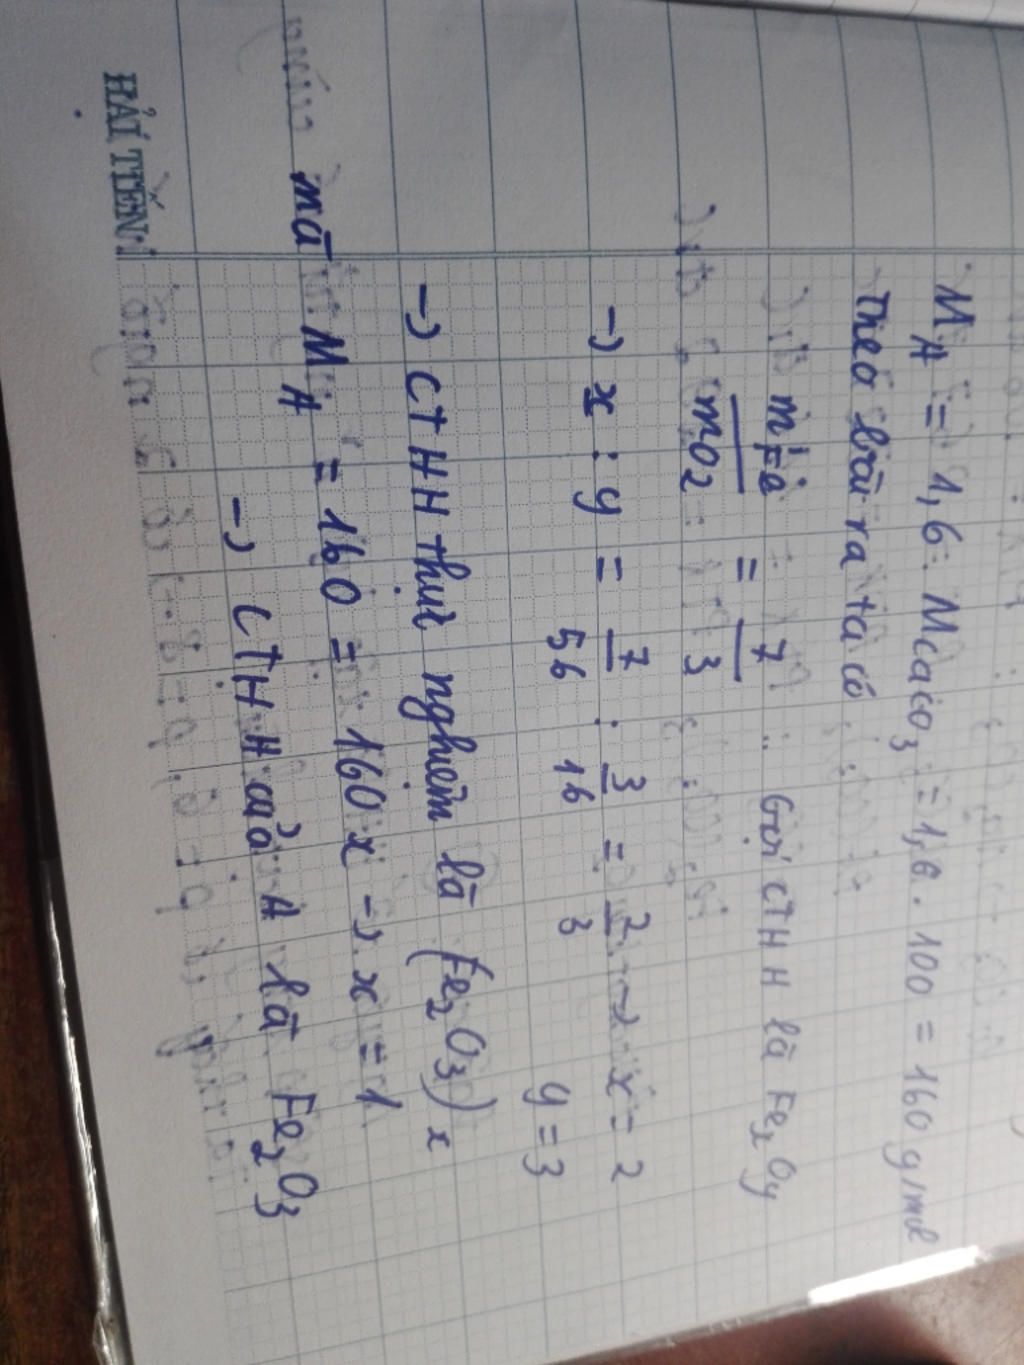 M_A = 1,6. MCaCO3 = 1,6 . 100 = 160 g/mol
Theo bài ra ta có
mFe / mO2 = 7 / 3 Gọi CTHH là FexOy
→ x : y = 7/56 : 3/16 = 2/3 → x = 2
y = 3
→ CTHH thực nghiệm là (Fe2O3)x
mà M_A = 160 = 160x → x = 1
→ CTHH của A là Fe2O3
HẢI TIẾN